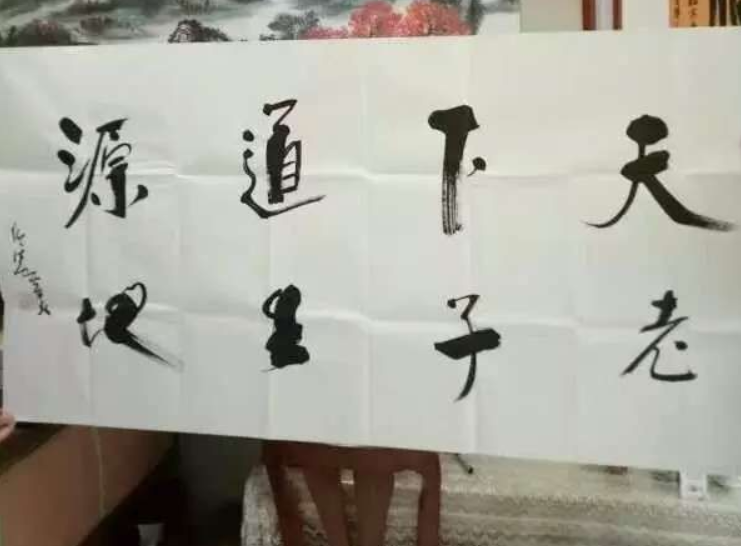 天下道源
老子圣地